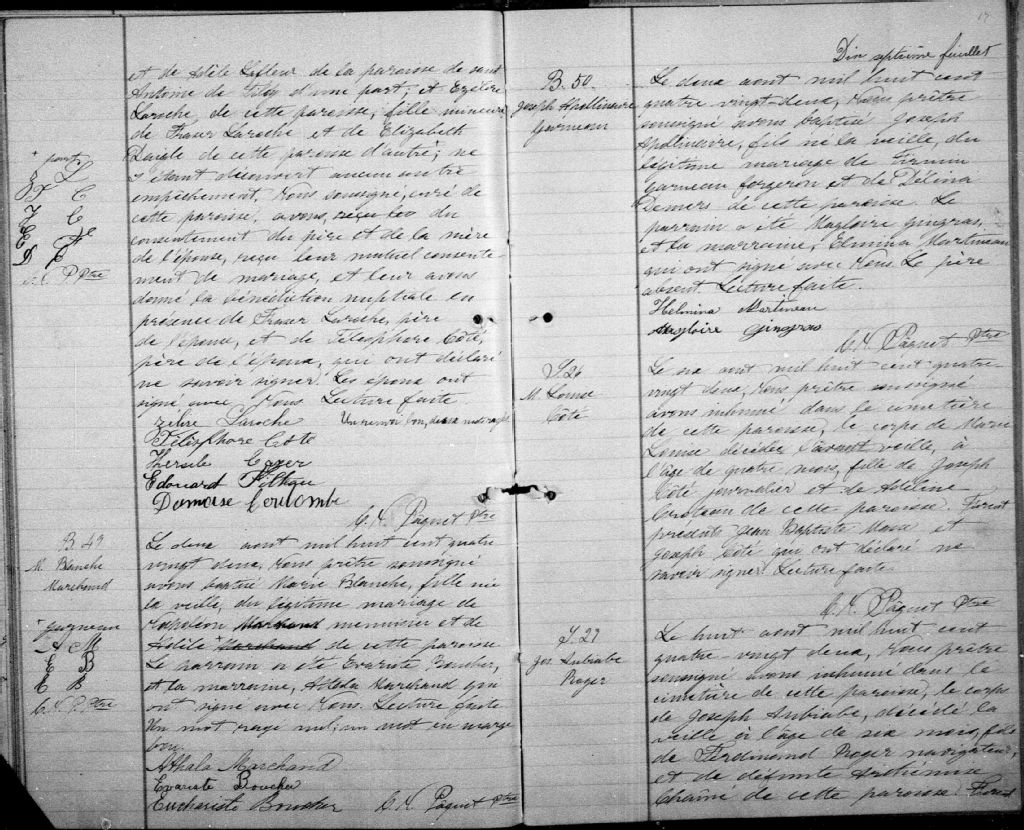 et de Adèle Lafleur de la paroisse de saint
Antoine de Tilly d'une part; et Exzélere
Laroche, de cette paroisse, fille mineure
de Fraser Laroche et de Elizabeth
Daigle de cette paroisse d'autre; ne
s'étant découvert aucun autre
empêchement, Nous soussigné, curé de
cette paroisse, avons, reçu leo du
consentement du père et de la mère
de l'épouse, reçu leur mutuel consente-
ment de mariage, et leur avons
donné la bénédiction nuptiale en
présence de Fraser Laroche, père
de l'épouse, et de Télesphore Côté,
père de l'époux, qui ont déclaré
ne savoir signer. Les époux ont
signé avec Nous Lecture faite.
Laroche Un renvoi bon, deux mots rayés
Télesphore Côté
Edouard
Damase Coulombe
C. A. Paquet Ptre
B 49
M. Blanche
Marchand
Le deux aout mil huit cent quatre
vingt deux, Nous prêtre soussigné
avons baptisé Marie Blanche, fille née
la veille, du légitime mariage de
Napoléon Marchand menuisier et de
Adèle Marchand de cette paroisse
Le parrain a été Evariste Boucher,
et la marraine, Adela Marchand qui
ont signé avec Nous. Lecture faite
Un mot rayé nul; un mot en marge
bon.
garneau
A M
E B
E B
C. A. P. Ptre
Athala Marchand
Evariste Boucher
Euchariste Boucher C. A. Paquet Ptre
17
Dix septième feuillet
B. 50
Joseph Apollinaire
Garneau
Le deux aout mil huit cent
quatre vingt-deux, Nous prêtre
soussigné avons baptisé Joseph
Apolinaire, fils né la veille, du
légitime mariage de Firmin
Garneau forgeron et de Délina
Demers de cette paroisse. Le
parrain a été Magloire gingras,
et la marraine, Elmina Martineau
qui ont signé avec Nous. Le père
absent. Lecture faite.
Helmina Martineau
Magloire Gingras
C. A. Paquet Ptre
S 26
M. Louise
Côté
Le six aout mil huit cent quatre-
vingt deux, Nous prêtre soussigné
avons inhumé dans le cimetière
de cette paroisse, le corps de Marie
Louise décédée l'avant veille, à
l'âge de quatre mois, fille de Joseph
Côté journalier et de Adeline
Croteau de cette paroisse. Furent
présents Jean Baptiste et
Joseph Côté qui ont déclaré ne
savoir signer. Lecture faite.
C. A. Paquet Ptre
S. 27
Jos. Aubiabe
Roger
Le huit aout mil huit cent
quatre-vingt deux, Nous prêtre
soussigné avons inhumé dans le
cimetière de cette paroisse, le corps
de Joseph Aubiabe, décédé la
veille à l'âge de six mois, fils
de Ferdinand Roger navigateur,
et de défunte Arthémise
Chaîné de cette paroisse. Furent